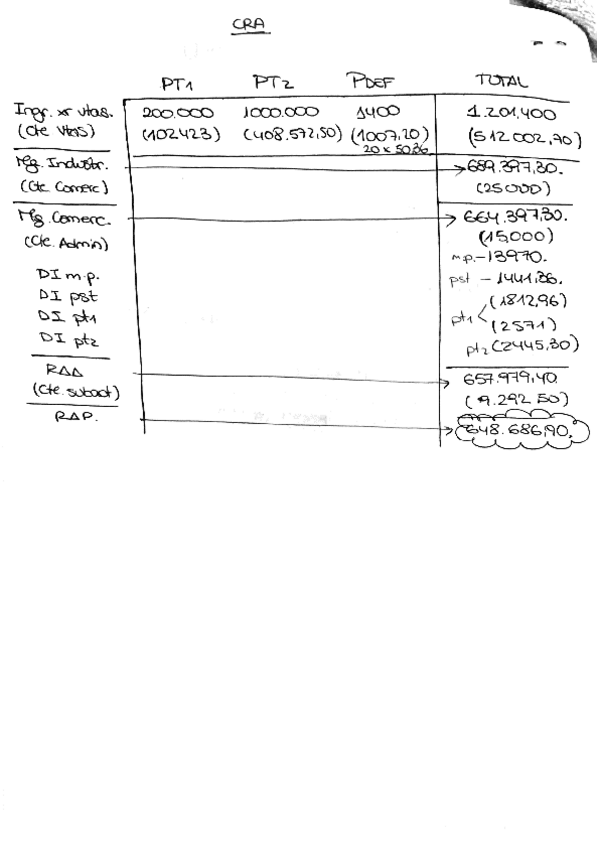 CRA
PT1 PT2 PDEF TOTAL
Ingr. xr vtas. 200.000 1000.000 1400 1.201,400
(Cte Vtas) (102423) (408.572,50) (1007,20) (512 002,70)
20 x 50,36
Mg. Industr. 689.397,30.
(Cte. Comerc) (25000)
Mg. Comerc. 664.397,30.
(Cte. Admin) (15,000)
m.p. - 13970.
DI m.p. pst - 1441,36.
DI pst (1812,96)
DI pt1 pt1 (2571)
DI pt2 pt2 (2445,30)
RAA 657.979,40.
(Cte. subact) (9.292,50)
RAP. 648.686,90.